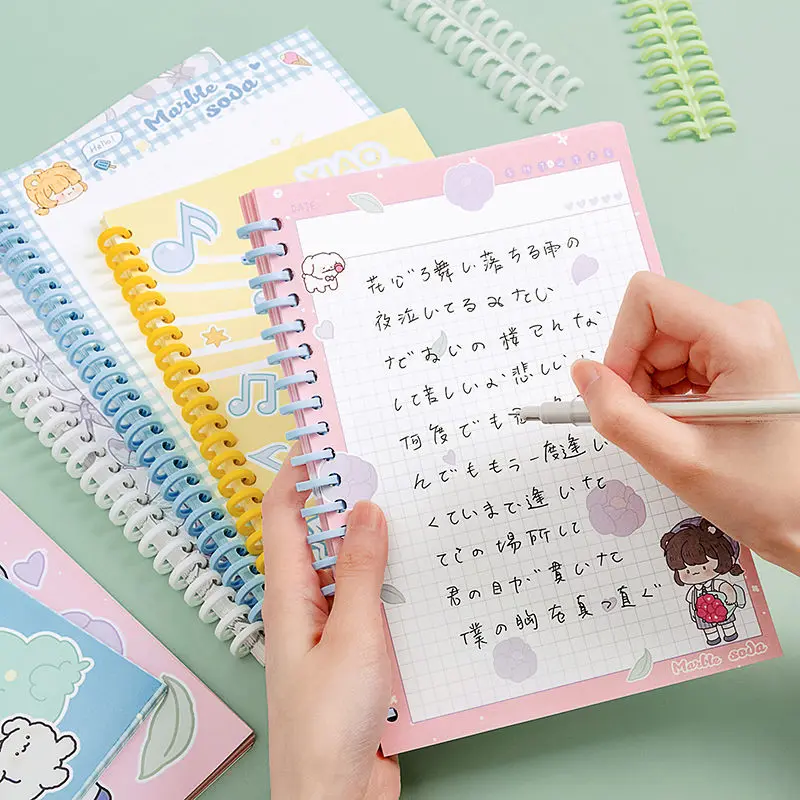 Marble soda
Hello!
XIAO
DATE:
S M T W T F S
花びら舞い落ちる雨の
夜泣いてるみたい
だねいの様てんな
して苦しいよ悲しい
何度でも
んでももう一度逢い
くていまで逢いたて
てこの場所して
君の目が貫いたて
僕の胸を真っ直ぐ
Marble soda